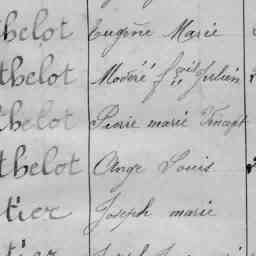 thelot Eugène Marie
thelot Modéré f çois Julien
thelot Pierre marie Vincent
thelot Ange Louis
tier Joseph marie
tier